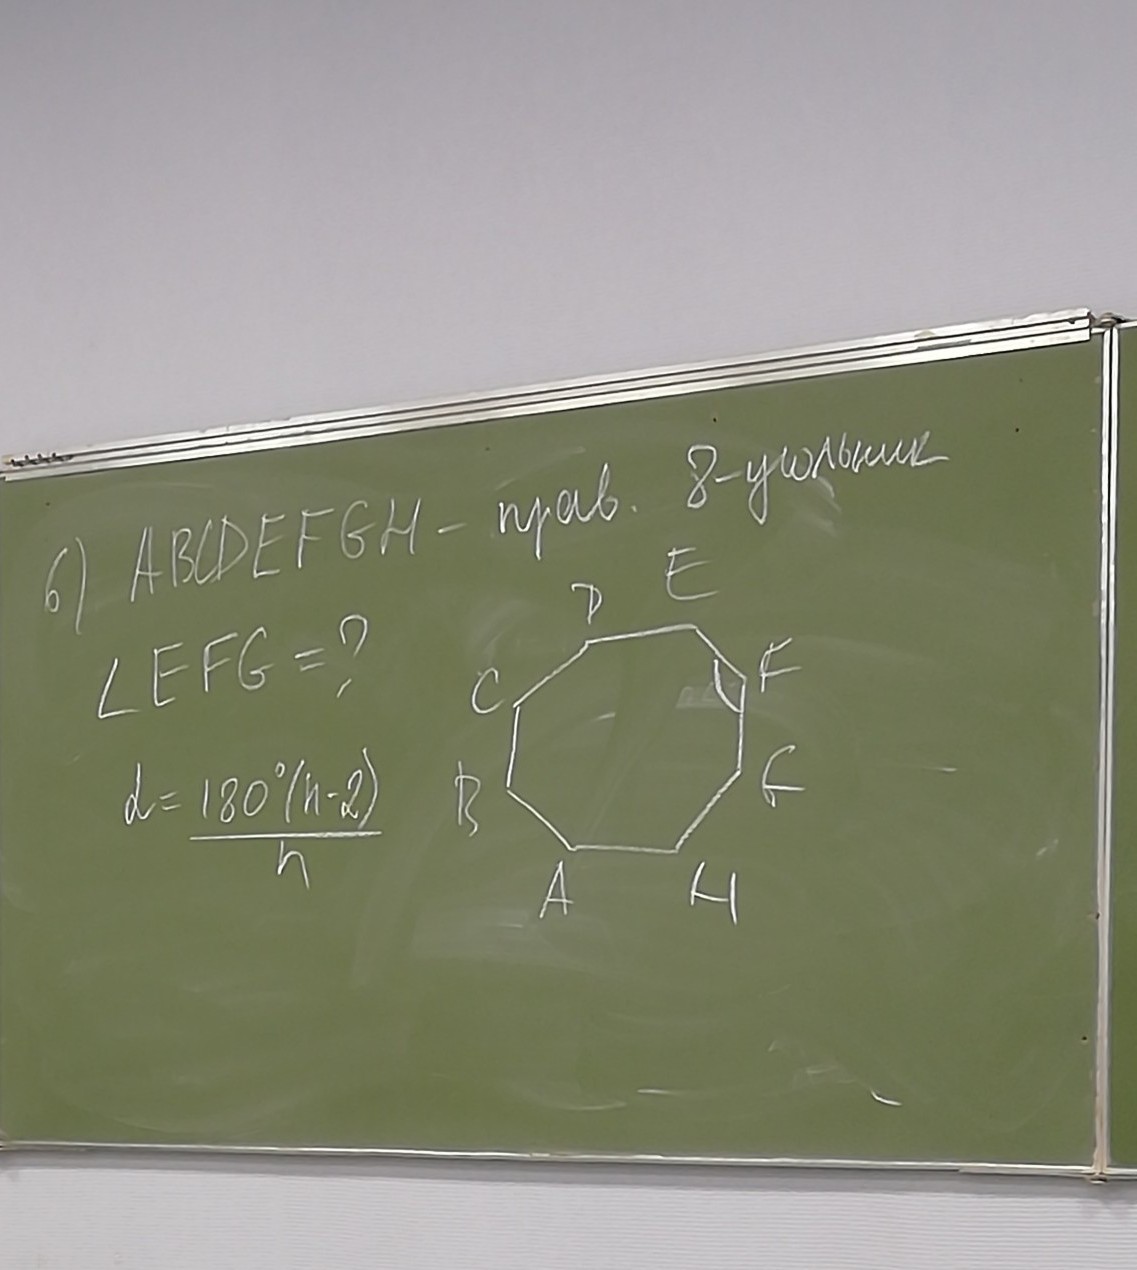 6) ABCDEFGH - прав. 8-угольник
∠EFG = ?
α = 180°(n-2)
n
D
E
C
F
B
G
A
H